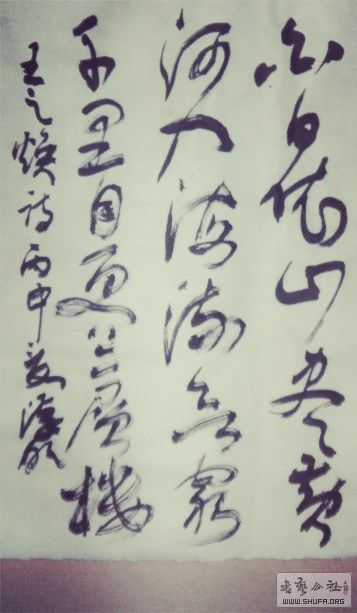 白日依山尽黄
河入海流欲穷
千里目更上一层楼
王之焕诗丙申夏
书艺公社
WWW.SHUFA.ORG